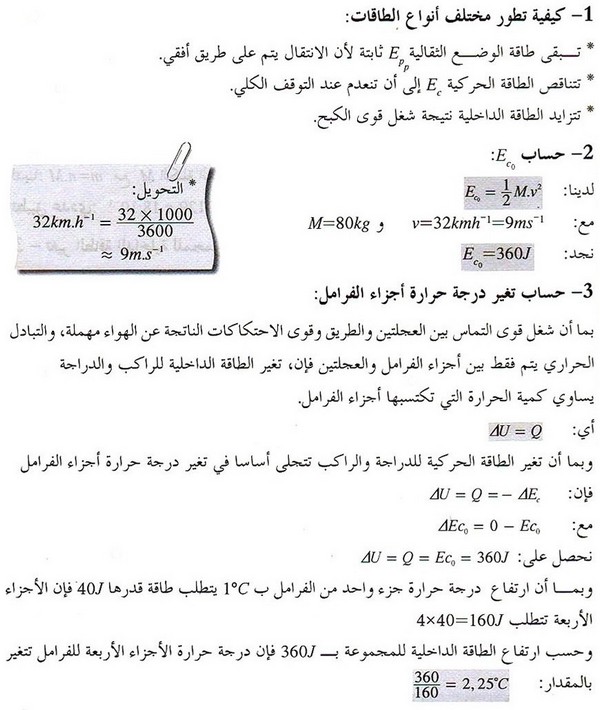 1- كيفية تطور مختلف أنواع الطاقات:
* تبقى طاقة الوضع الثقالية Epp ثابتة لأن الانتقال يتم على طريق أفقي.
* تتناقص الطاقة الحركية Ec إلى أن تنعدم عند التوقف الكلي.
* تتزايد الطاقة الداخلية نتيجة شغل قوى الكبح.
2- حساب Ec0:
لدينا: Ec0 = 1/2 M.v²
مع: v=32kmh⁻¹=9ms⁻¹ و M=80kg
نجد: Ec0=360J
* التحويل:
32km.h⁻¹ = 32 × 1000 / 3600
≈ 9m.s⁻¹
3- حساب تغير درجة حرارة أجزاء الفرامل:
بما أن شغل قوى التماس بين العجلتين والطريق وقوى الاحتكاكات الناتجة عن الهواء مهملة، والتبادل
الحراري يتم فقط بين أجزاء الفرامل والعجلتين فإن، تغير الطاقة الداخلية للراكب والدراجة
يساوي كمية الحرارة التي تكتسبها أجزاء الفرامل.
أي: ΔU = Q
وبما أن تغير الطاقة الحركية للدراجة والراكب تتجلى أساسا في تغير درجة حرارة أجزاء الفرامل
فإن: ΔU = Q = – ΔEc
مع: ΔEc0 = 0 – Ec0
نحصل على: ΔU = Q = Ec0 = 360J
وبما أن ارتفاع درجة حرارة جزء واحد من الفرامل ب 1°C يتطلب طاقة قدرها 40J فإن الأجزاء
الأربعة تتطلب 4×40=160J
وحسب ارتفاع الطاقة الداخلية للمجموعة بـ 360J فإن درجة حرارة الأجزاء الأربعة للفرامل تتغير
بالمقدار: 360/160 = 2,25°C